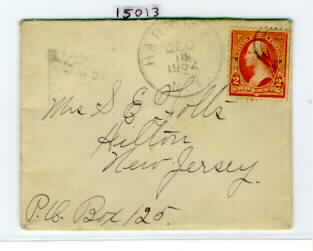 15013
HAR
DEC
18
Mrs S E Folts
Hilton
New Jersey.
P.O. Box 125.
2 2